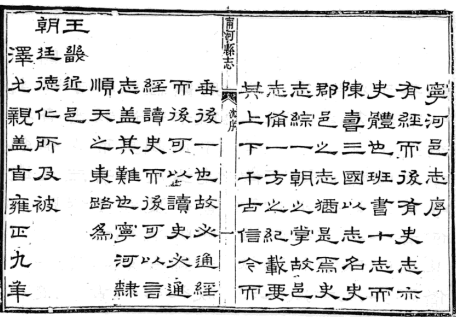 寧河邑志序
有經而後有史志亦
史體也班書十志而
陳壽三國以志名史
郡邑之志猶是焉史
志綜一朝之掌故邑
志備一方之紀載要
其上下千古信今而
甯河縣志
沈序
一
垂後一也故必通經
而後可以讀史必通
經讀史而後可以言
志盖其難也寧河隸
順天之東路為
王畿近邑
朝廷德仁所及被
澤尤親盖自雍正九年